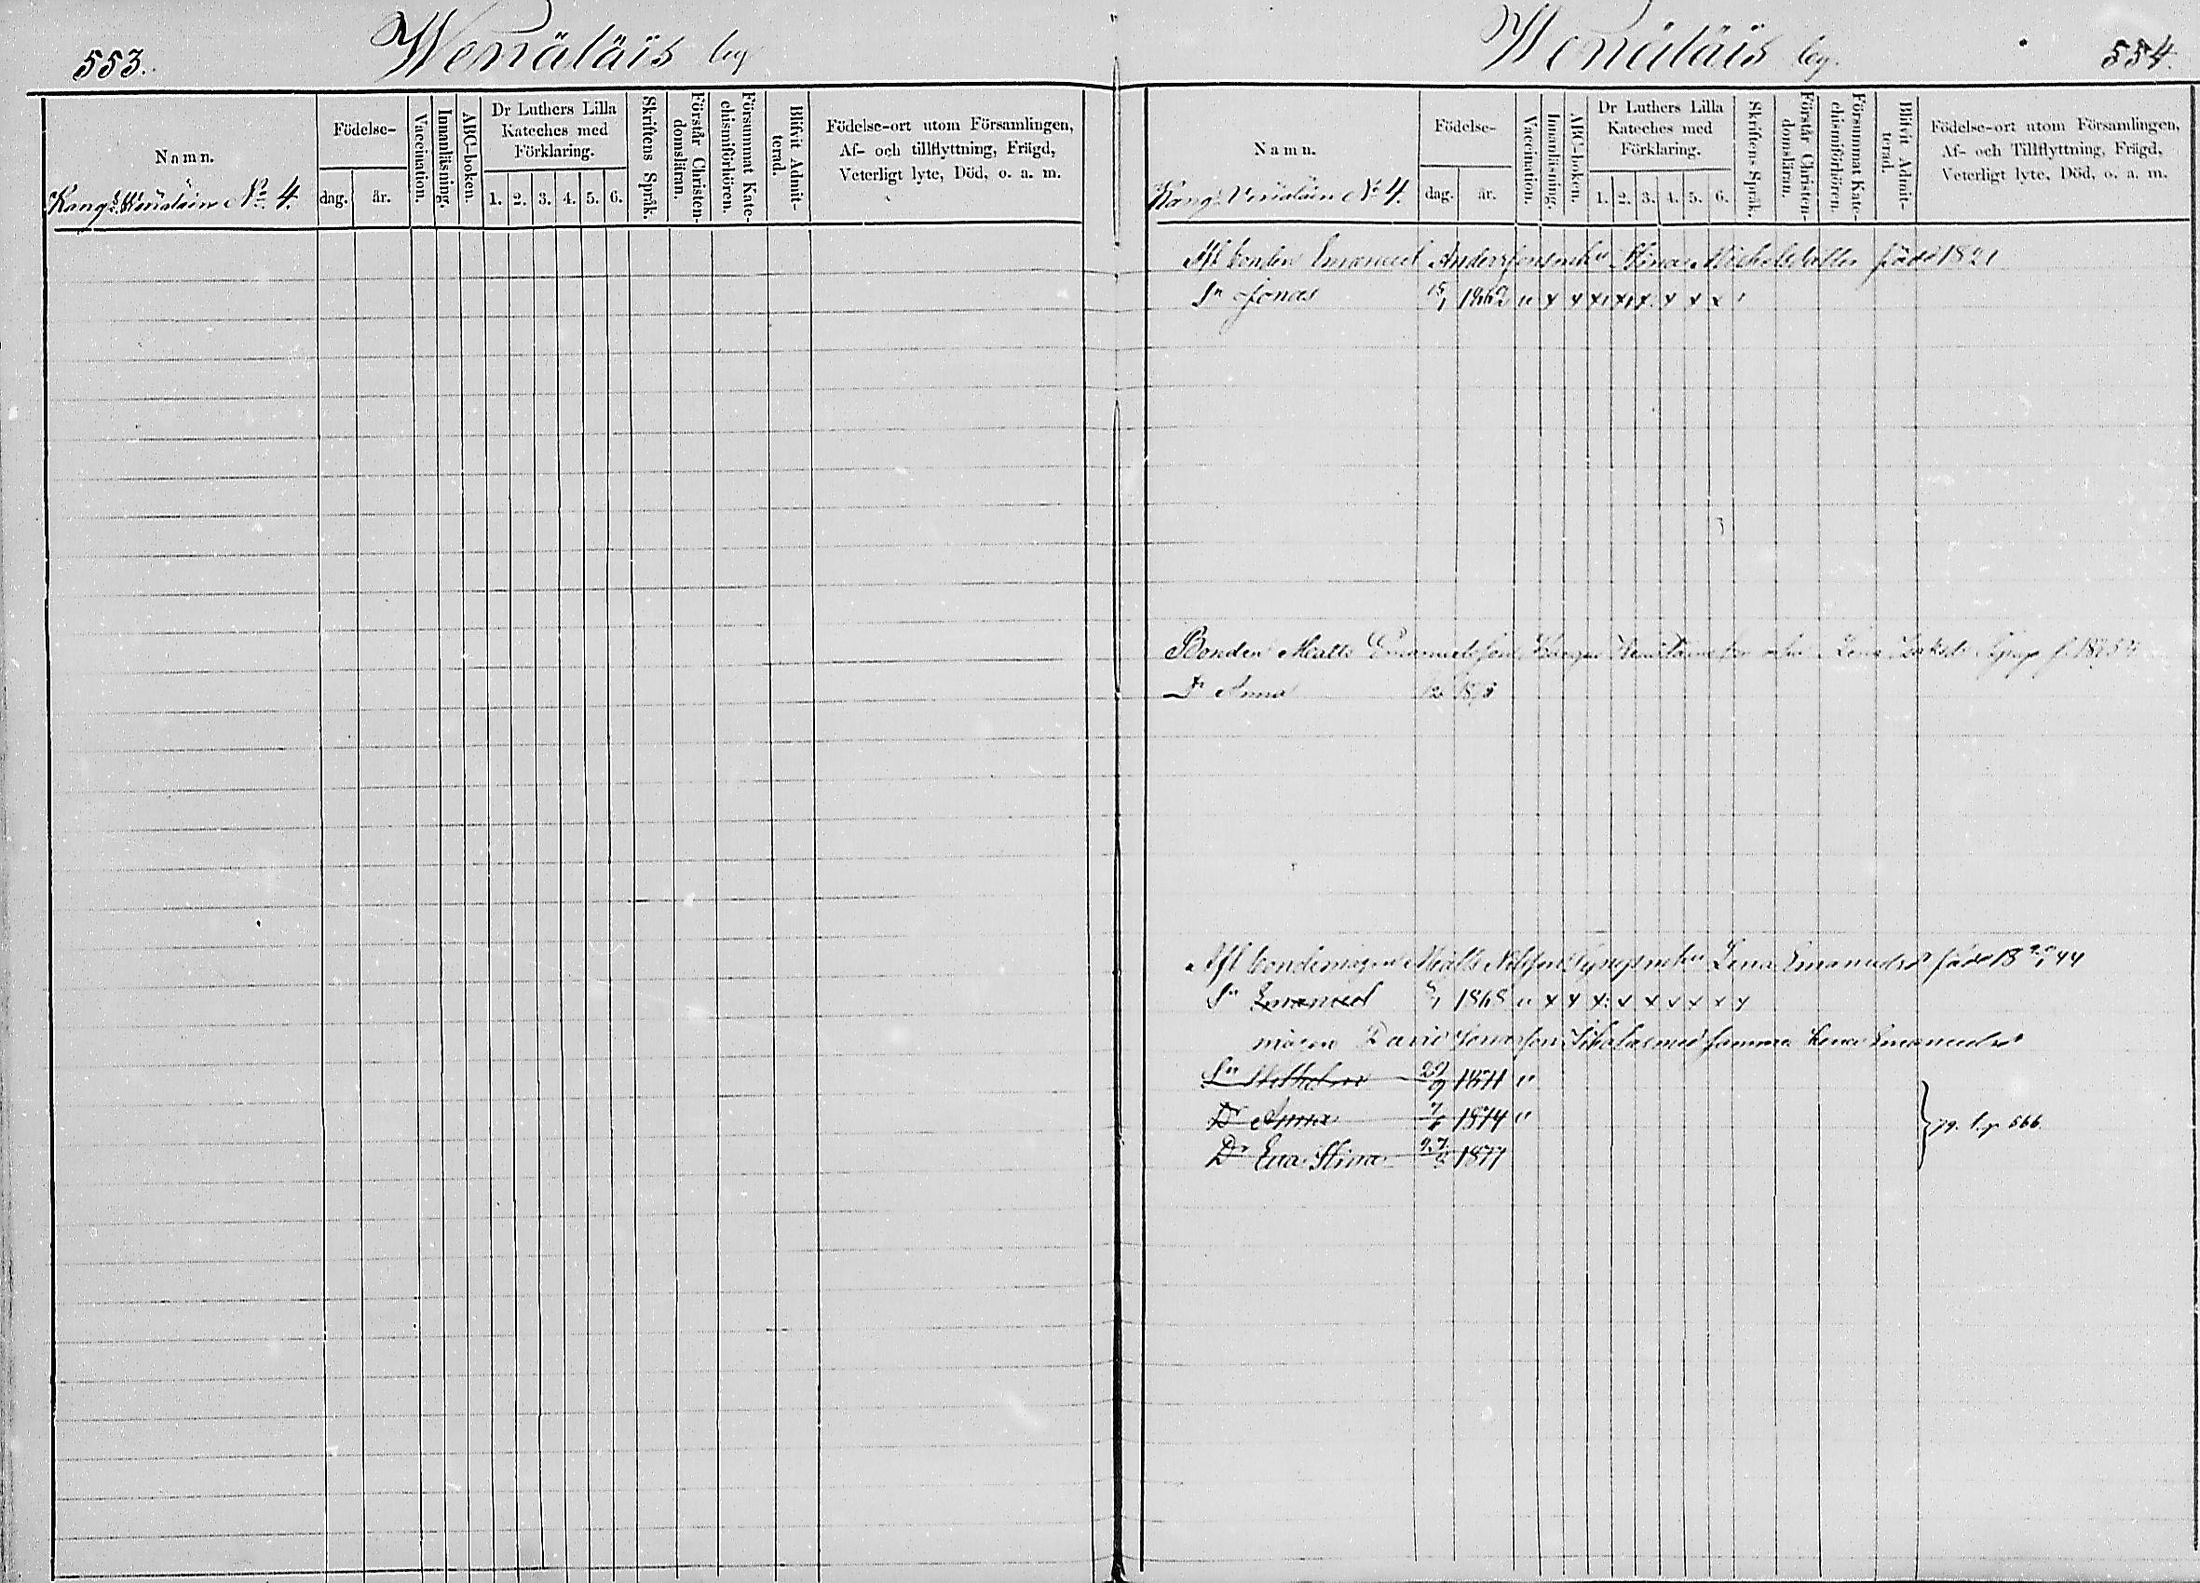 553.
Wenäläis by
Namn.
Födelse-
dag. år.
Vaccination.
Innanläsning.
ABC-boken.
Dr Luthers Lilla
Kateches med
Förklaring.
1. 2. 3. 4. 5. 6.
Skriftens Språk.
Förstår Christen-
domsläran.
Försummat Kate-
chismiförhören.
Blifvit Admit-
terad.
Födelse-ort utom Församlingen,
Af- och tillflyttning, Frägd,
Veterligt lyte, Död, o. a. m.
Kang. Wenäläin No 4.
Wenäläis by.
554.
Namn.
Födelse-
dag. år.
Vaccination.
Innanläsning.
ABC-boken.
Dr Luthers Lilla
Kateches med
Förklaring.
1. 2. 3. 4. 5. 6.
Skriftens Språk.
Förstår Christen-
domsläran.
Försummat Kate-
chismiförhören.
Blifvit Admit-
terad.
Födelse-ort utom Församlingen,
Af- och Tillflyttning, Frägd,
Veterligt lyte, Död, o. a. m.
Kang. Venäläin No 4.
Afl bonden Emanuel Andersson Stina född 1821
Sn Jonas 15/1 1862 u x x x x x x x x
Bonden Matts Emanuelsson Lena
Dr Anna
Afl bondemågen Matts Nilsson Lena Emanuelsdr född 18 44
Sn Emanuel 5/1 1868 u x x x: x x x x x x
mågen David Jonasson med samma Lena Emanuelsdr
Sn Wilhelm 29/9 1871 "
Dr Anna 1874 "
Dr Eva Stina 1877
79. l. p 566.